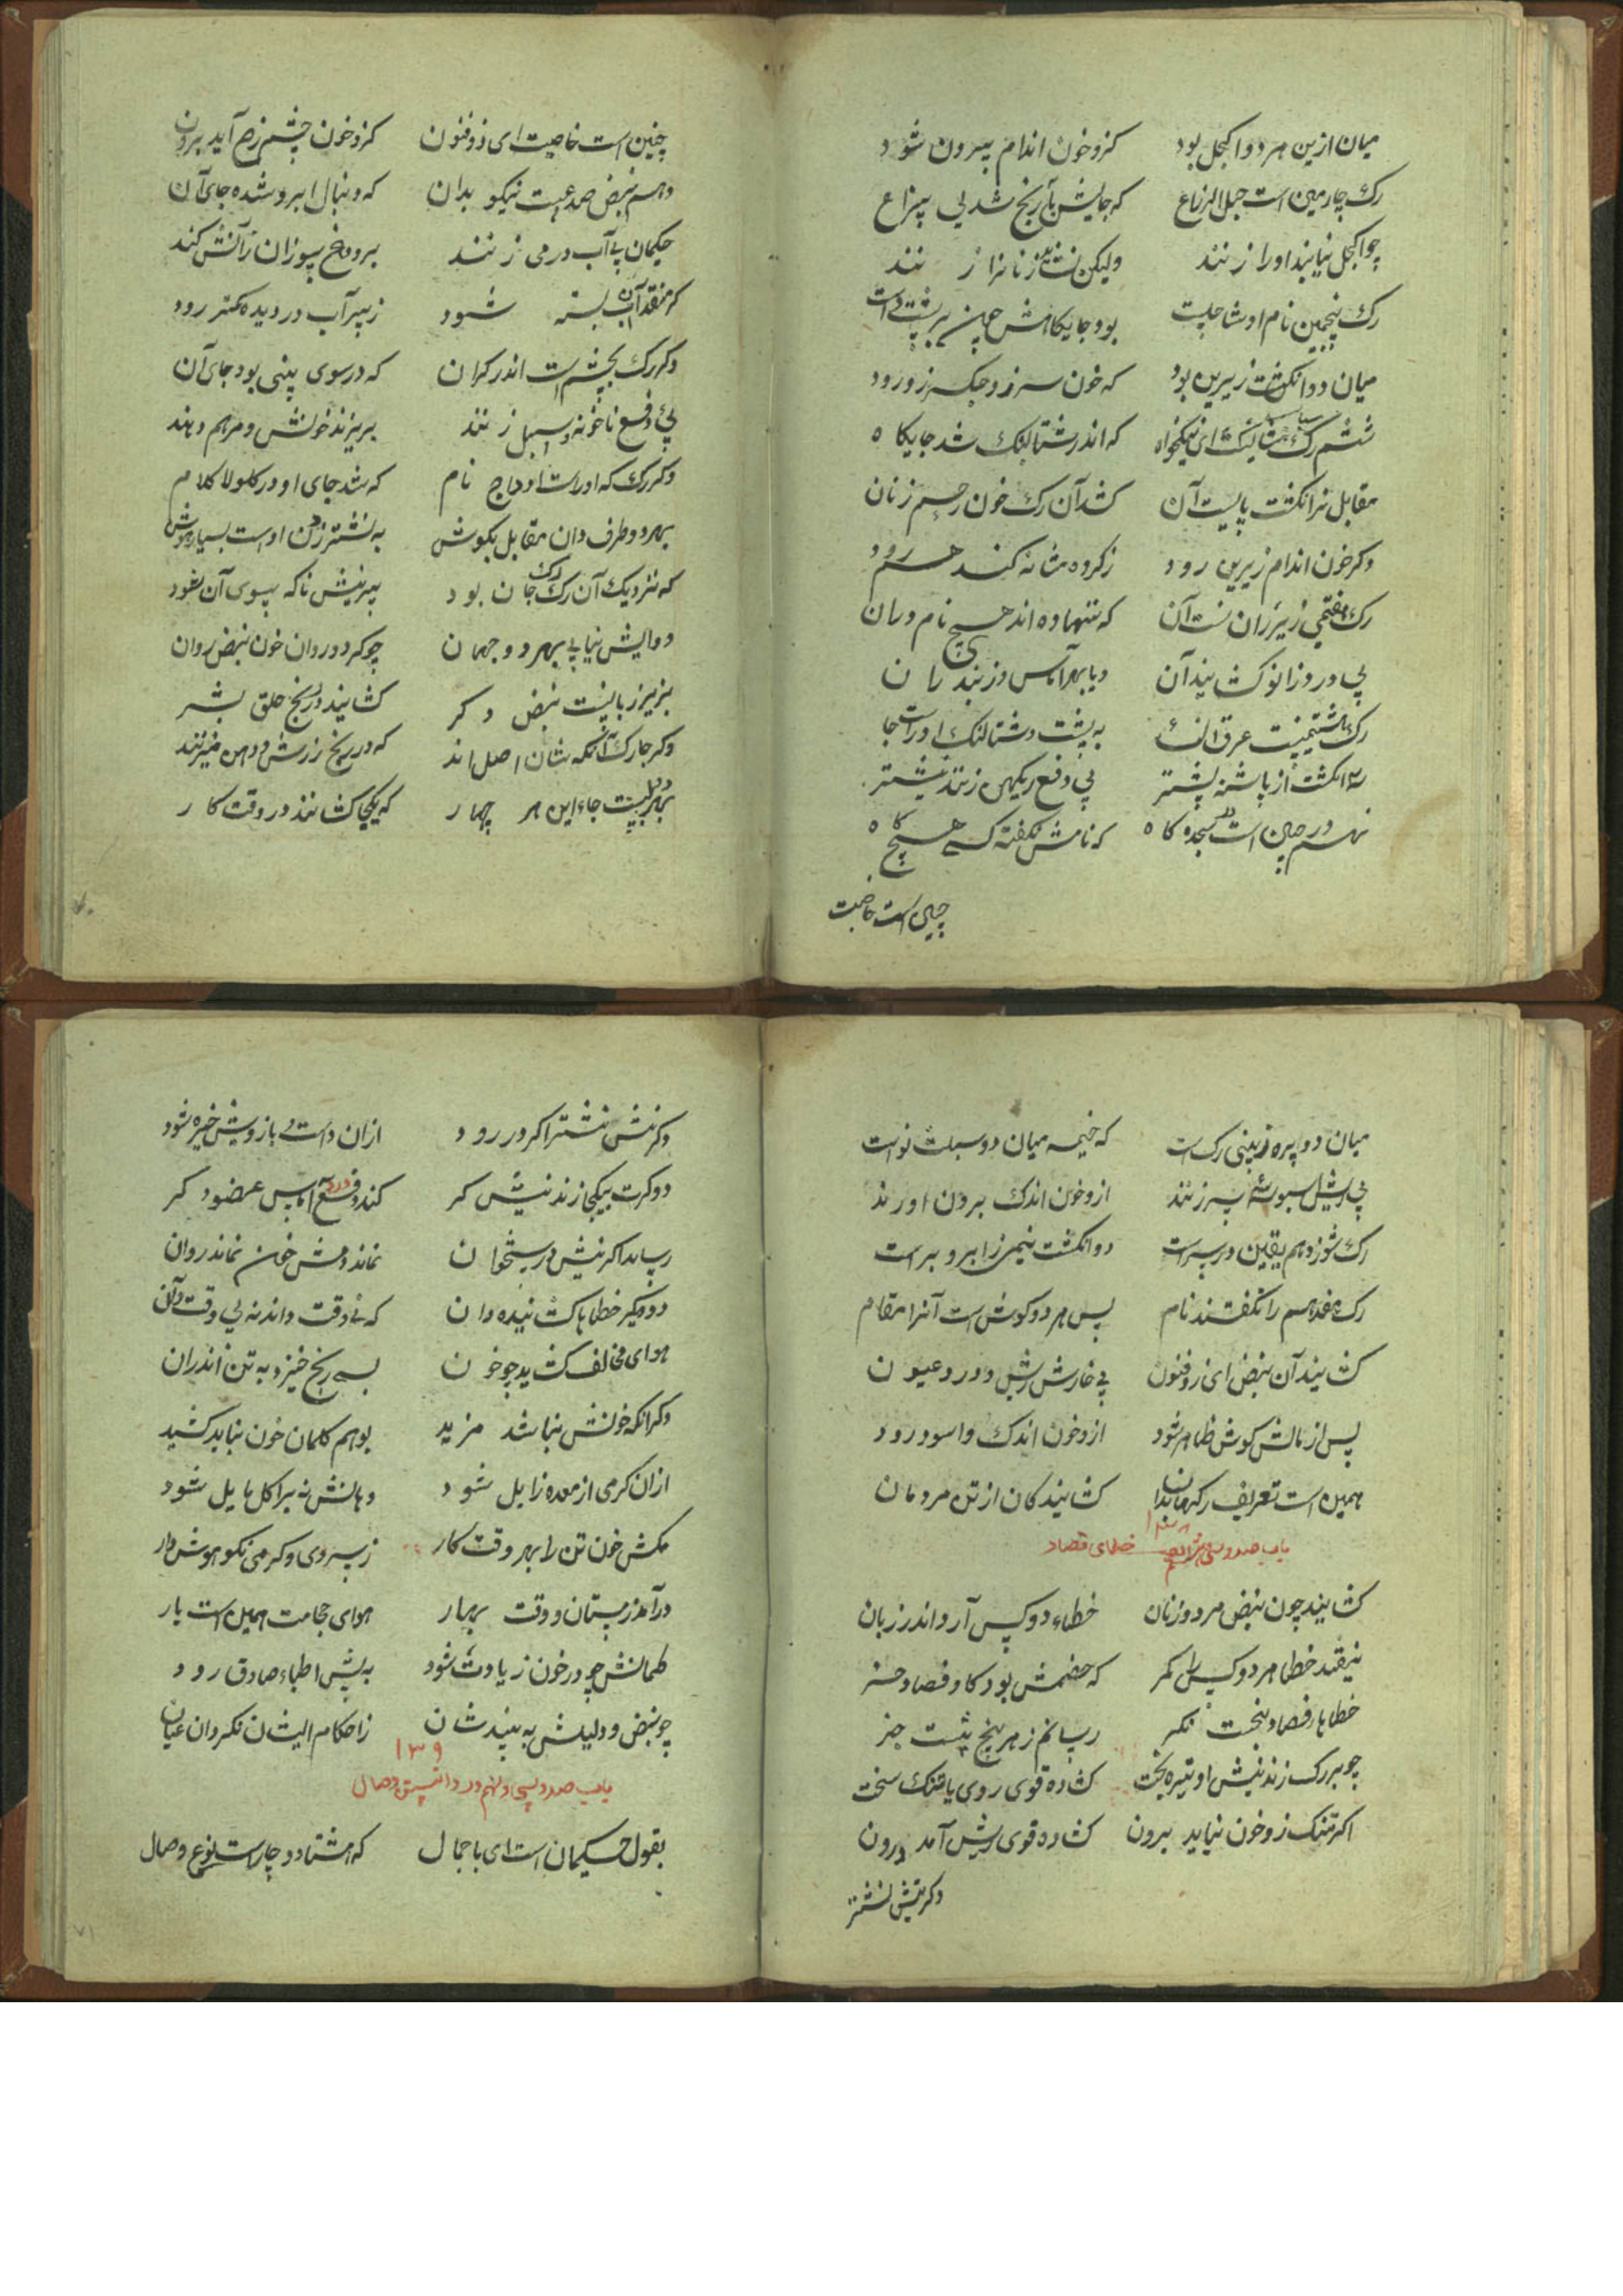 میان ازین هر دو اکحل بود کزو خون اندام بیرون شود
رک چارمین است حبل الزراع که جایش بآرنج شد بی نزاع
چو اکحل نیابند او را زنند ولیکن زنانرا زنند
رک پنجمین نام او شا بود جایکاهش
میان دو انکشت زیرین بود که خون سپرز و جکر زو رود
ششم رک ای نیکخواه که اندر شتالنک شد جایکاه
مقابل نر انکشت پایست آن کشد آن رک خون رحم زنان
دکر خون اندام زیرین رود ز کرده مثانه کند
رک هفتمی زیر ران است آن که ننهاده اند هیچ نام
پی درد زانو کشایند آن
رک هشتمینست عرق النسا به پشت شتالنک او راست جا
سه انکشت از پاشنه پیشتر پی دفع زنند نیشتر
نهم در است سجده کاه که نامش نکفته کسی هیچ کاه
چنین است خاصیت
چنین است خاصیت ای ذو فنون کزو خون چشم آید برون
دهم نبض صدغیست نیکو بدان که دنبال ابرو شده جای آن
حکیمان پی آب در می زنند برو داغ سوزان ز آتش کنند
که منفذ آب بسته شود زبهر آب در دیده کمتر رود
دکر رک بچشم است اندر کران که در سوی بینی بود جای آن
پی دفع ناخونه و سبل زنند بریزند خونش و مرهم دهند
دکر رک که اوراست اوداج نام که شد جای او در کلو لا کلام
بهر دو طرف دان مقابل بکوش به نشتر زدن اوست بسیار هوش
که نزدیک آن رک رک جان بود نیش ناکه بسوی آن نغود
دوایش نیابی بهر دو جهان چو کردد روان خون نبض روان
بزیر زبانیست نبض دکر کشایند در رنج حلق بشر
دکر چار رک آنکه شان اصل اند که در رنج و دهن میزنند
بهر لبیست جاء این هر چهار که یکجا کشانند در وقت کار
میان دو پره ز بینی رک است که خیمه میان دو سبلت نواست
پی زنند ازو خون اندک برون آورند
رک شوزدهم یقین در سر است دو انکشت نیمی ز ابرو برست
رک هفدهم را نکفتند نام پس هر دو کوش است آنرا مقام
کشایند آن نبض ای ذو فنون پی خارش ریش و درد عیون
پس از مالش کوش ظاهر شود ازو خون اندک و اسود رود
همین است تعریف رکها بدان کشایندکان از تن مردمان
۱۳۸
باب صد و سی و هشتم خطای فصاد
کشایند چون نبض مرد و زنان خطاء دو کس آرد اندر زبان
نیفتد خطا هر دو کس را مکر که خصمش بود کا و فصاد خر
خطاها ز فصاد پنجست نکر رسانم ز هر پنج بشت خبر
چو بر رک زند نیش او تیره بخت کشاده قوی روی یا تنک سخت
اکر تنک زو خون نیاید برون کشاده قوی ریش آمد درون
دکر نیش نشتر
دکر نیش نشتر اکر در رود ازان دست و بازویش خیره شود
دو کرت بیکجا زند نیش کر کند دفع آماس عضو دکر
رساند اکر نیش در استخوان نماند دمش خون نماند روان
دو دیکر خطاها کشاننده دان که نی وقت داند نه بی وقت و آن
هوای مخالف کشید چو خون بسی رنج خیزد به تن اندران
دکر آنکه خونش نباشد مزید بوهم کلمان خون نباید کشید
ازان کرمی از معده زایل شود دهانش نه برا کل مایل شود
مکش خون تن را بهر وقت کار ز سردی و کرمی نکو هوش دار
در آمد زمستان و وقت بهار هوای حجامت همین است یار
طمانش چو در خون زیادت شود به پیش اطباء صادق رود
چو نبض و دلیلش به بینند شان ز احکام ایشان نکردان عیان
۱۳۹
باب صد و سی و نهم در دانستن وصال
بقول حکیمان است ای با جمال که هشتاد و چارست نوع وصال